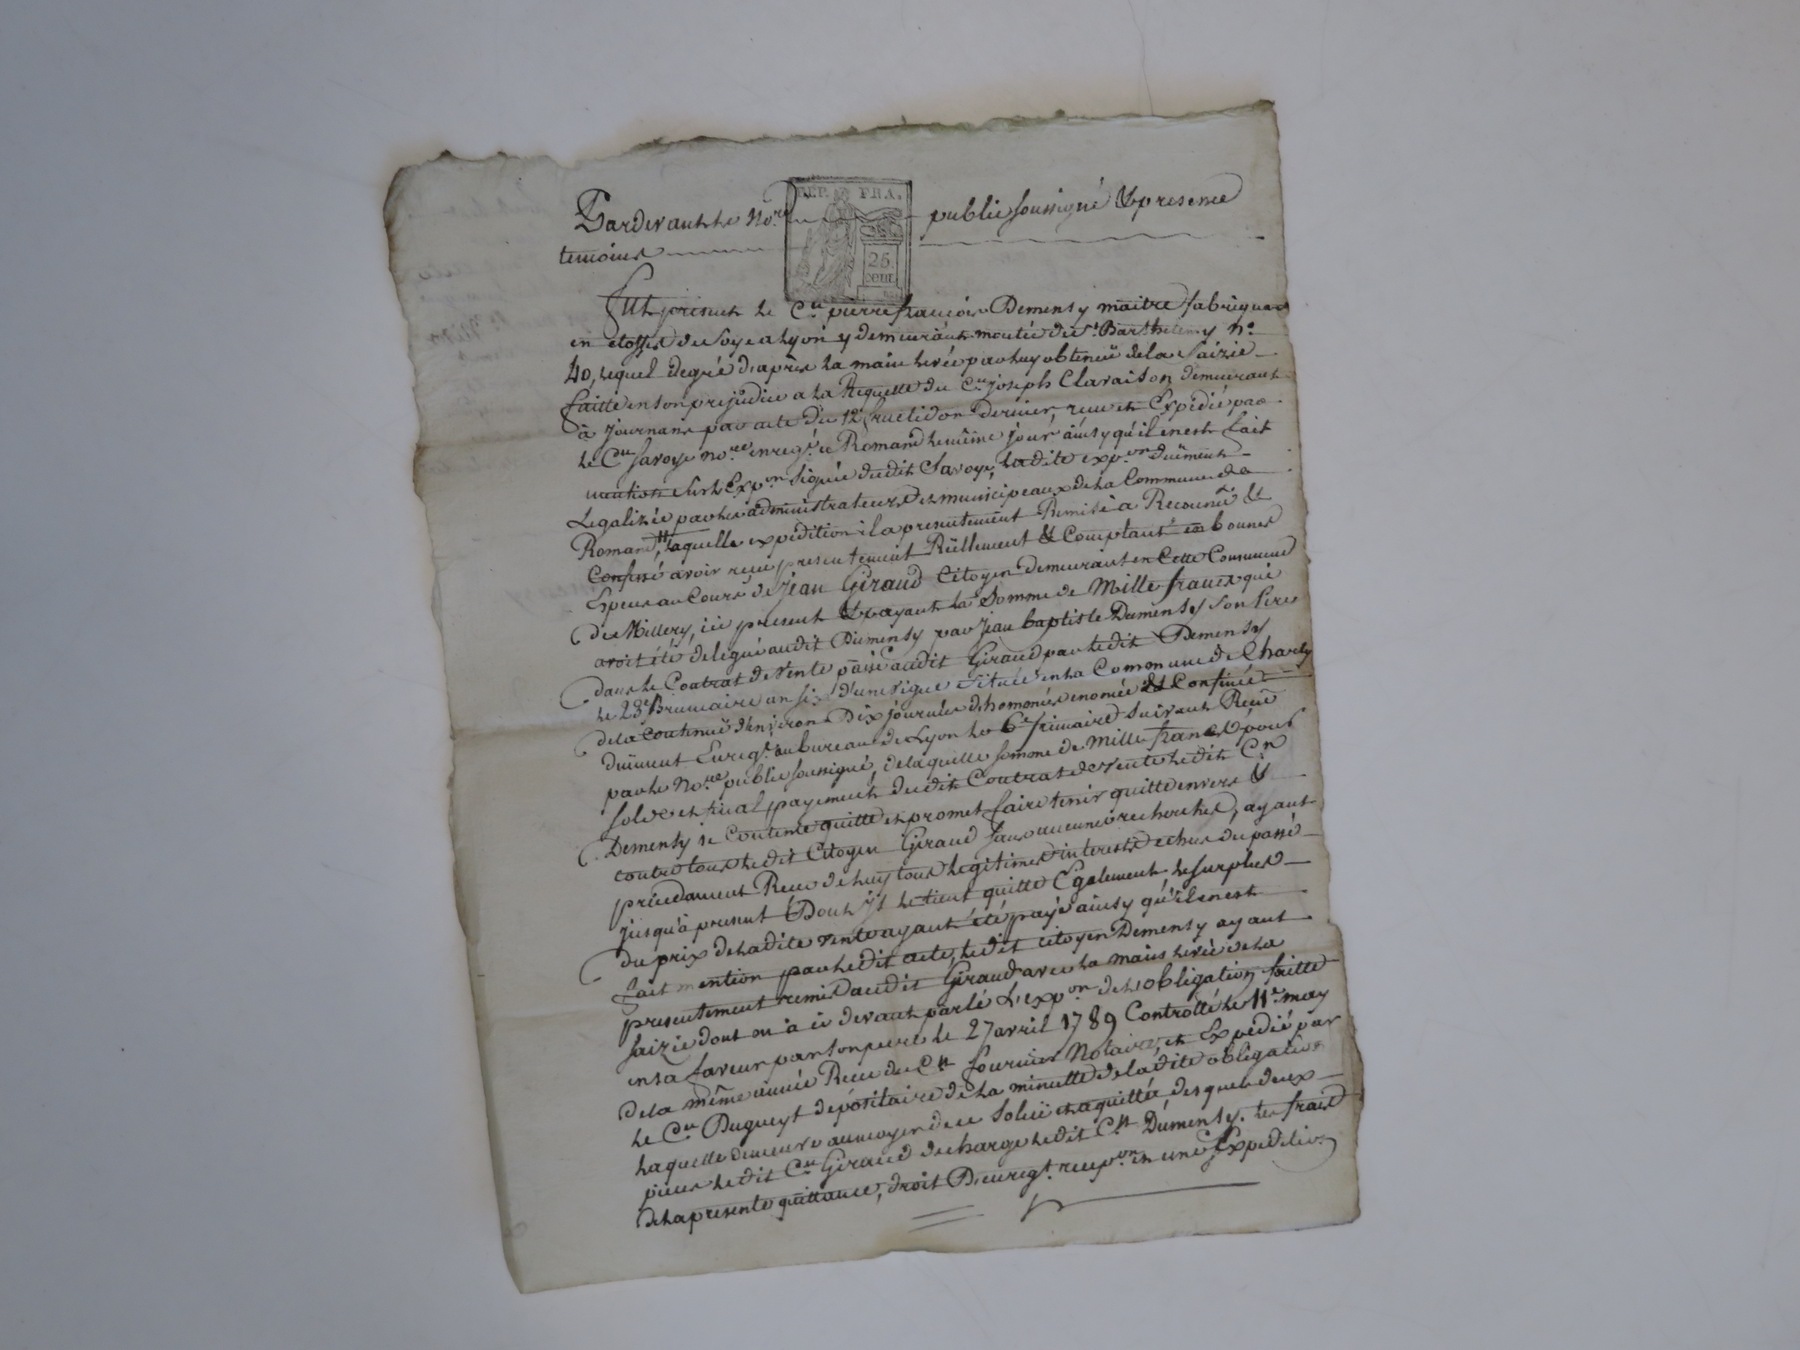 Pardevant le No.re public soussigné & presence
REP. FRA.
25 cent.
temoins
Fut present le C.en pierre françois Dementhy maitre fabriquant
en etoffes de Soye a Lyon y demeurant montée de S.t Barthelemy N.o
40, lequel degré d'après la main levée par luy obtenuë de la Saizie
faitte en son prejudice a la Requette du C.en joseph Claraison demeurant
à Journans par acte du 12 fructidor dernier, recu et Expedié par
le C.en Savoye no.re enreg.é a Romand le même jour ainsy qu'il en est fait
mention sur l'Exp.on signée dudit Savoye, ladite exp.on düement
Legalizée par les administrateurs municipeaux de la Commune de
Romand, laquelle expedition il a presentement Remise a Reconnu &
Confessé avoir recu presentement Rëellement & Comptant en bonnes
Especes au Cours de Jean Giraud Citoyen demeurant en Cette Commune
de Millery, ici present & payant la Somme de Mille francs qui
avoit été delegué audit Dementhy par Jean baptiste Dementhy Son Pere
dans le Contrat de Vente passé audit Giraud par ledit Dementhy
le 23 Brumaire an six d'une vigne Située en la Commune de Charly
de la contenuë d'environ Dix journées d'hommes, enomée & Confinée
düement Enreg.é au bureau de Lyon le 6.e frimaire Suivant Recu
par le No.re public soussigné, de laquelle somme de Mille francs & pour
solde et final payement dudit Contrat de vente ledit C.en
Dementhy se Contente quitte et promet faire tenir quitte envers &
contre tous ledit Citoyen Giraud sans aucunes recherches, ayant
precedament Recu de luy tous legitimes interests echus du passé
jusqu'à present Dont il le tient quitte Egalement, le surplus
du prix de ladite vente ayant été payé ainsy qu'il en est
fait mention par ledit acte, ledit citoyen Dementhy ayant
presentement remis audit Giraud avec la main levée de la
saizie dont on a ci devant parlé L'exp.on de l'obligation faitte
en sa faveur par son pere le 27 avril 1789 Controllé le 11.e may
de la même année Recu du C.en fournier Notaire, et Expedié par
le C.en Dugueyt depositaire de la minutte de ladite obligation
laquelle demeure au moyen de ce Soluë et aquittée, desquels deux
pieces ledit C.en Giraud decharge ledit C.en Dementhy. les frais
de la presente quittance, droit D'enreg.t recep.on en une Expedition